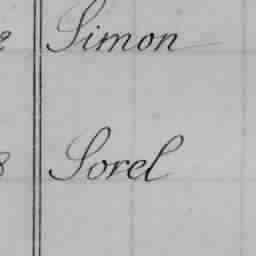 2 Simon
8 Sorel